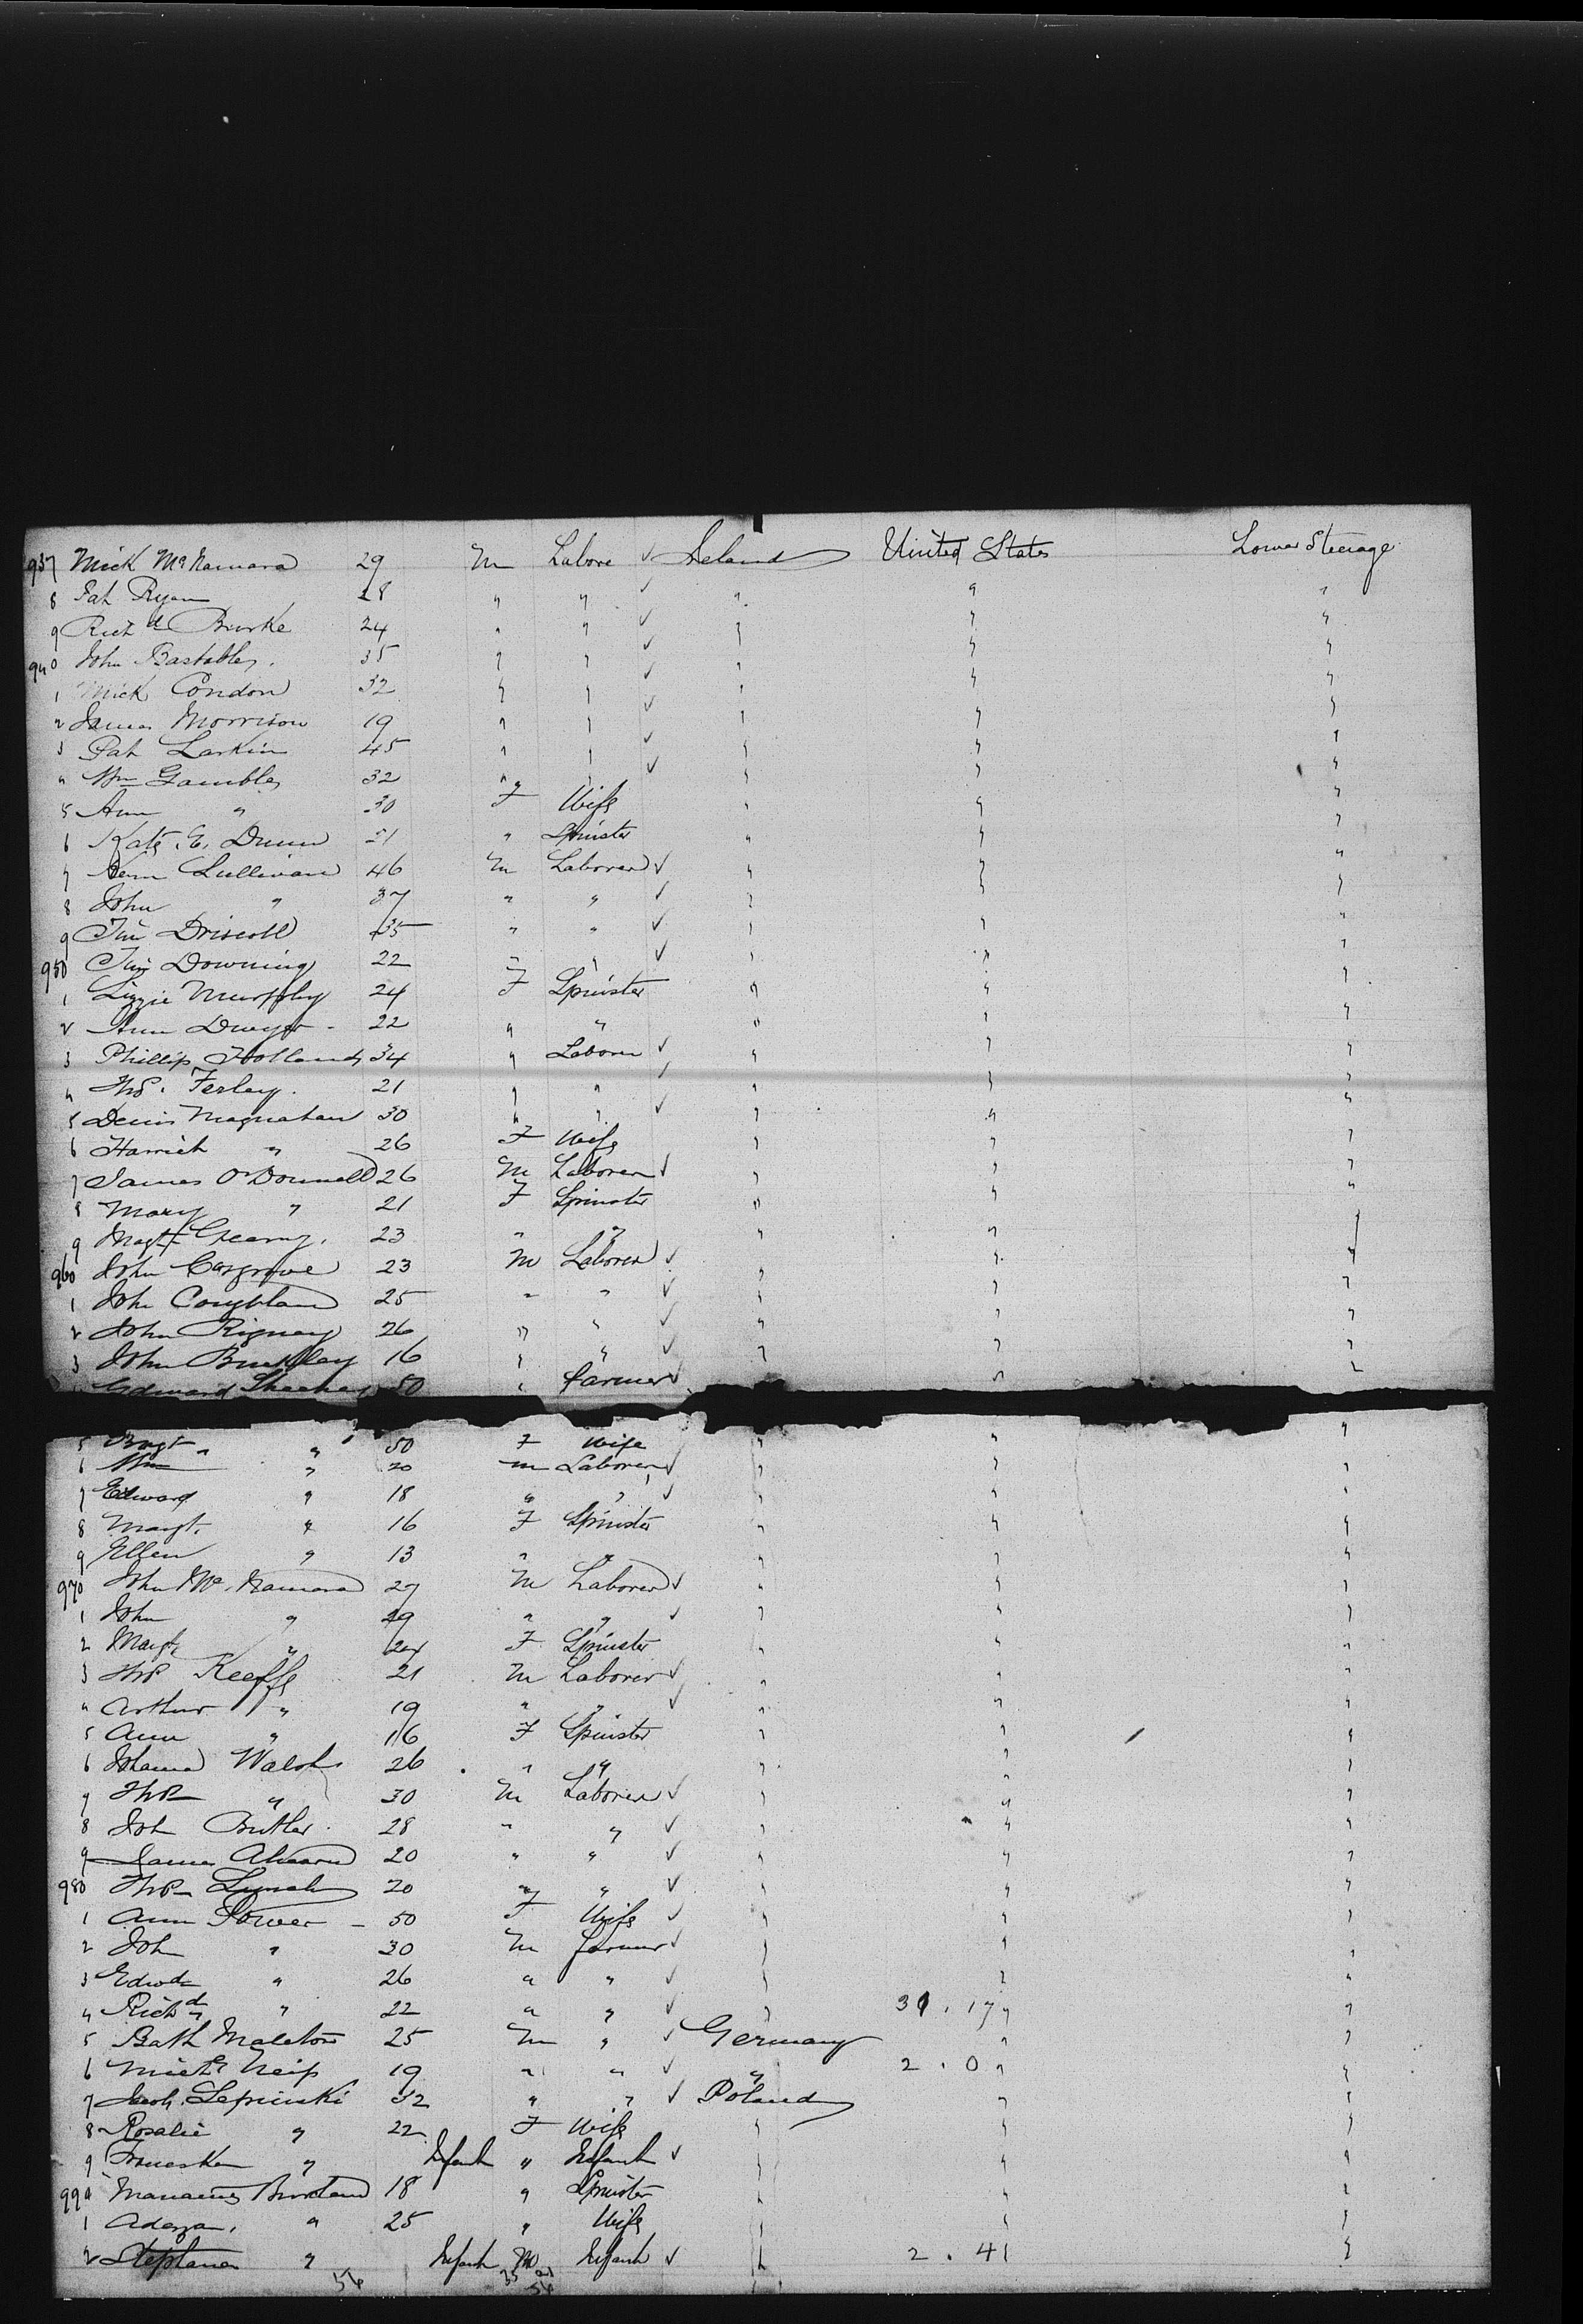 937 Mick McNamara 29 M Labore ✓ Ireland United States Lower Steerage
8 Pat Ryan 28 " " ✓ " " "
9 Richd Burke 24 " " ✓ " " "
940 John Bastable 35 " " ✓ " " "
1 Mick Condon 32 " " ✓ " " "
2 James Morrison 19 " " ✓ " " "
3 Pat Larkin 45 " " ✓ " " "
4 Wm Gamble 32 " " ✓ " " "
5 Ann " 30 F Wife " " "
6 Kate E. Dunn 21 " Spinster " " "
7 Sullivan 46 M Laborer ✓ " " "
8 John " 37 " " ✓ " " "
9 Tim Driscoll 35 " " ✓ " " "
950 Tim Downing 22 " " ✓ " " "
1 Lizzie Murphy 24 F Spinster " " "
2 Ann Dwyer 22 " " " " "
3 Phillip Holland 34 " Laborer ✓ " " "
4 Thos. Ferley 21 " " ✓ " " "
5 Denis Magnahan 30 " " ✓ " " "
6 Harriet " 26 F Wife " " "
7 James O'Donnell 26 M Laborer ✓ " " "
8 Mary " 21 F Spinster " " "
9 Magt 23 " " " " "
960 John Cosgrove 23 M Laborer ✓ " " "
1 John Coughlan 25 " " ✓ " " "
2 John Rigney 26 " " ✓ " " "
3 John Buckley 16 " " ✓ " " "
Edward Sheehey 50 " farmer ✓ " "
5 Magt " 50 F Wife " " "
6 Wm " 20 M Laborer ✓ " " "
7 Edward " 18 " " ✓ " " "
8 Margt. " 16 F Spinster " " "
9 Ellen " 13 " " " " "
970 John McNamara 27 M Laborer ✓ " " "
1 John " 29 " " ✓ " " "
2 Margt " 24 F Spinster " " "
3 Thos Keeffe 21 M Laborer ✓ " " "
4 Arthur " 19 " " ✓ " " "
5 Ann " 16 F Spinster " " "
6 Johanna Walsh 26 " " " " "
7 Thos " 30 M Laborer ✓ " " "
8 Joh Butler 28 " " ✓ " " "
9 James Ahearn 20 " " ✓ " " "
980 Thos Lynch 20 " " ✓ " " "
1 Ann Power 50 F Wife ✓ " " "
2 Joh " 30 M farmer ✓ " " "
3 Edwd " 26 " " ✓ " " "
4 Richd " 22 " " ✓ " 31.17 " "
5 Bath Maleton 25 M " ✓ Germany " "
6 Neip 19 " " ✓ " 2.0 " "
7 Jacob Lepinski 32 " " ✓ Poland " "
8 Rosalie " 22 F Wife " " "
9 " Infant " Infant ✓ " " "
990 18 " Spinster " " "
1 " 25 " Wife " " "
2 Stephanes " Infant M Infant ✓ " 2.41 "
56 35 56